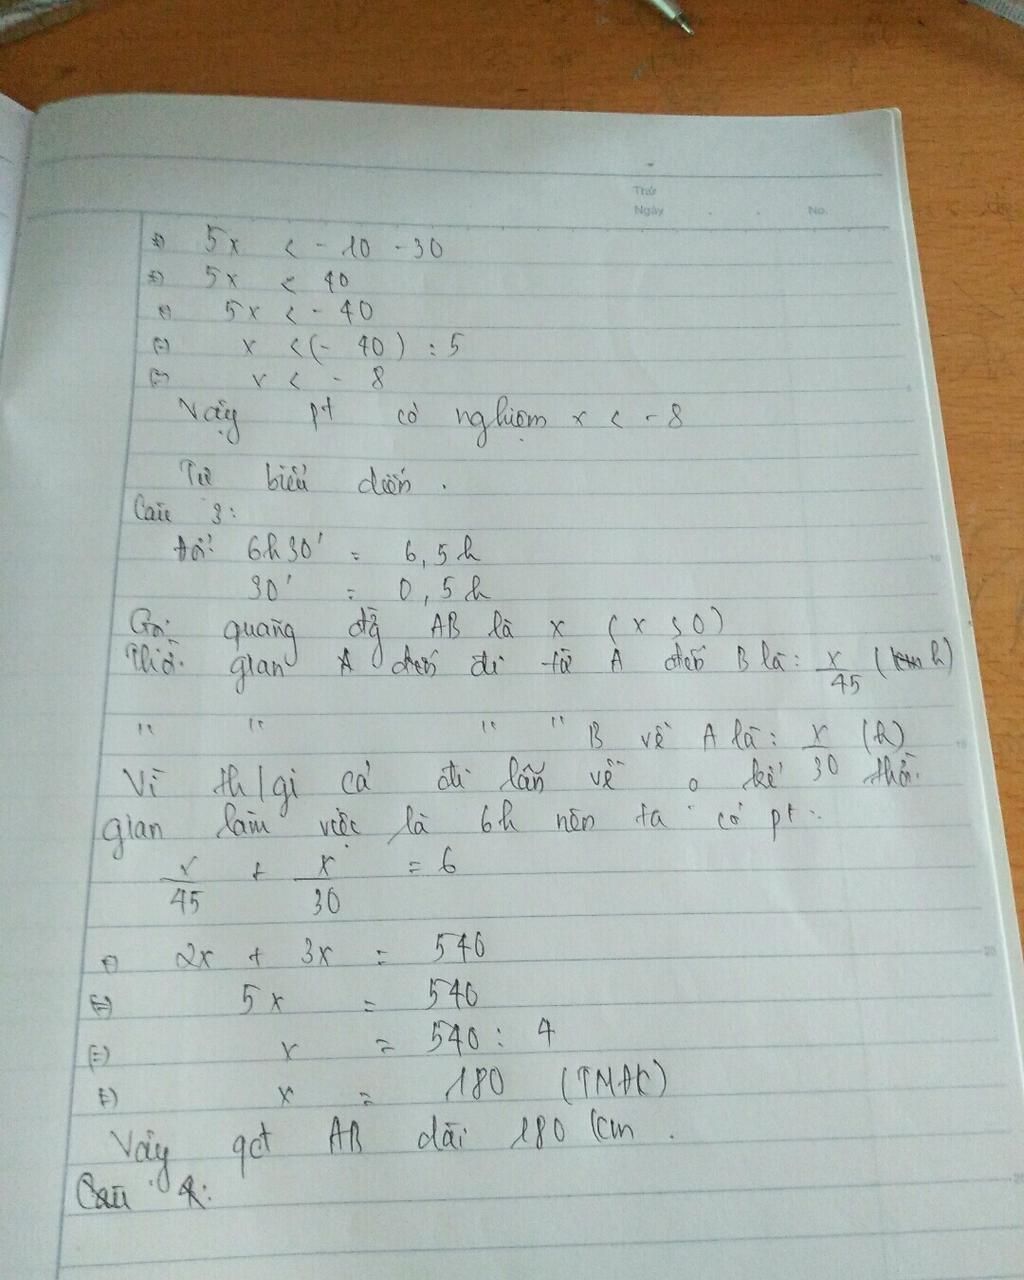 Thứ
Ngày . . No.
⇔ 5x < - 10 - 30
⇔ 5x < 40
⇔ 5x < - 40
⇔ x < (- 40) : 5
⇔ x < - 8
Vậy pt có nghiệm x < - 8
Tự biểu diễn .
Câu 3:
Đổi 6h30' = 6,5h
30' = 0,5h
Gọi quãng đg AB là x (x > 0)
Thời gian A đến đi từ A đến B là: x/45 (km h)
" " " " B về A là: x/30 (h)
Vì th/gi cả đi lẫn về o kể thời
gian làm việc là 6h nên ta có pt:
x/45 + x/30 = 6
⇔ 2x + 3x = 540
⇔ 5x = 540
⇔ x = 540 : 4
⇔ x = 180 (TMĐK)
Vậy qđ AB dài 180 km .
Câu 4: